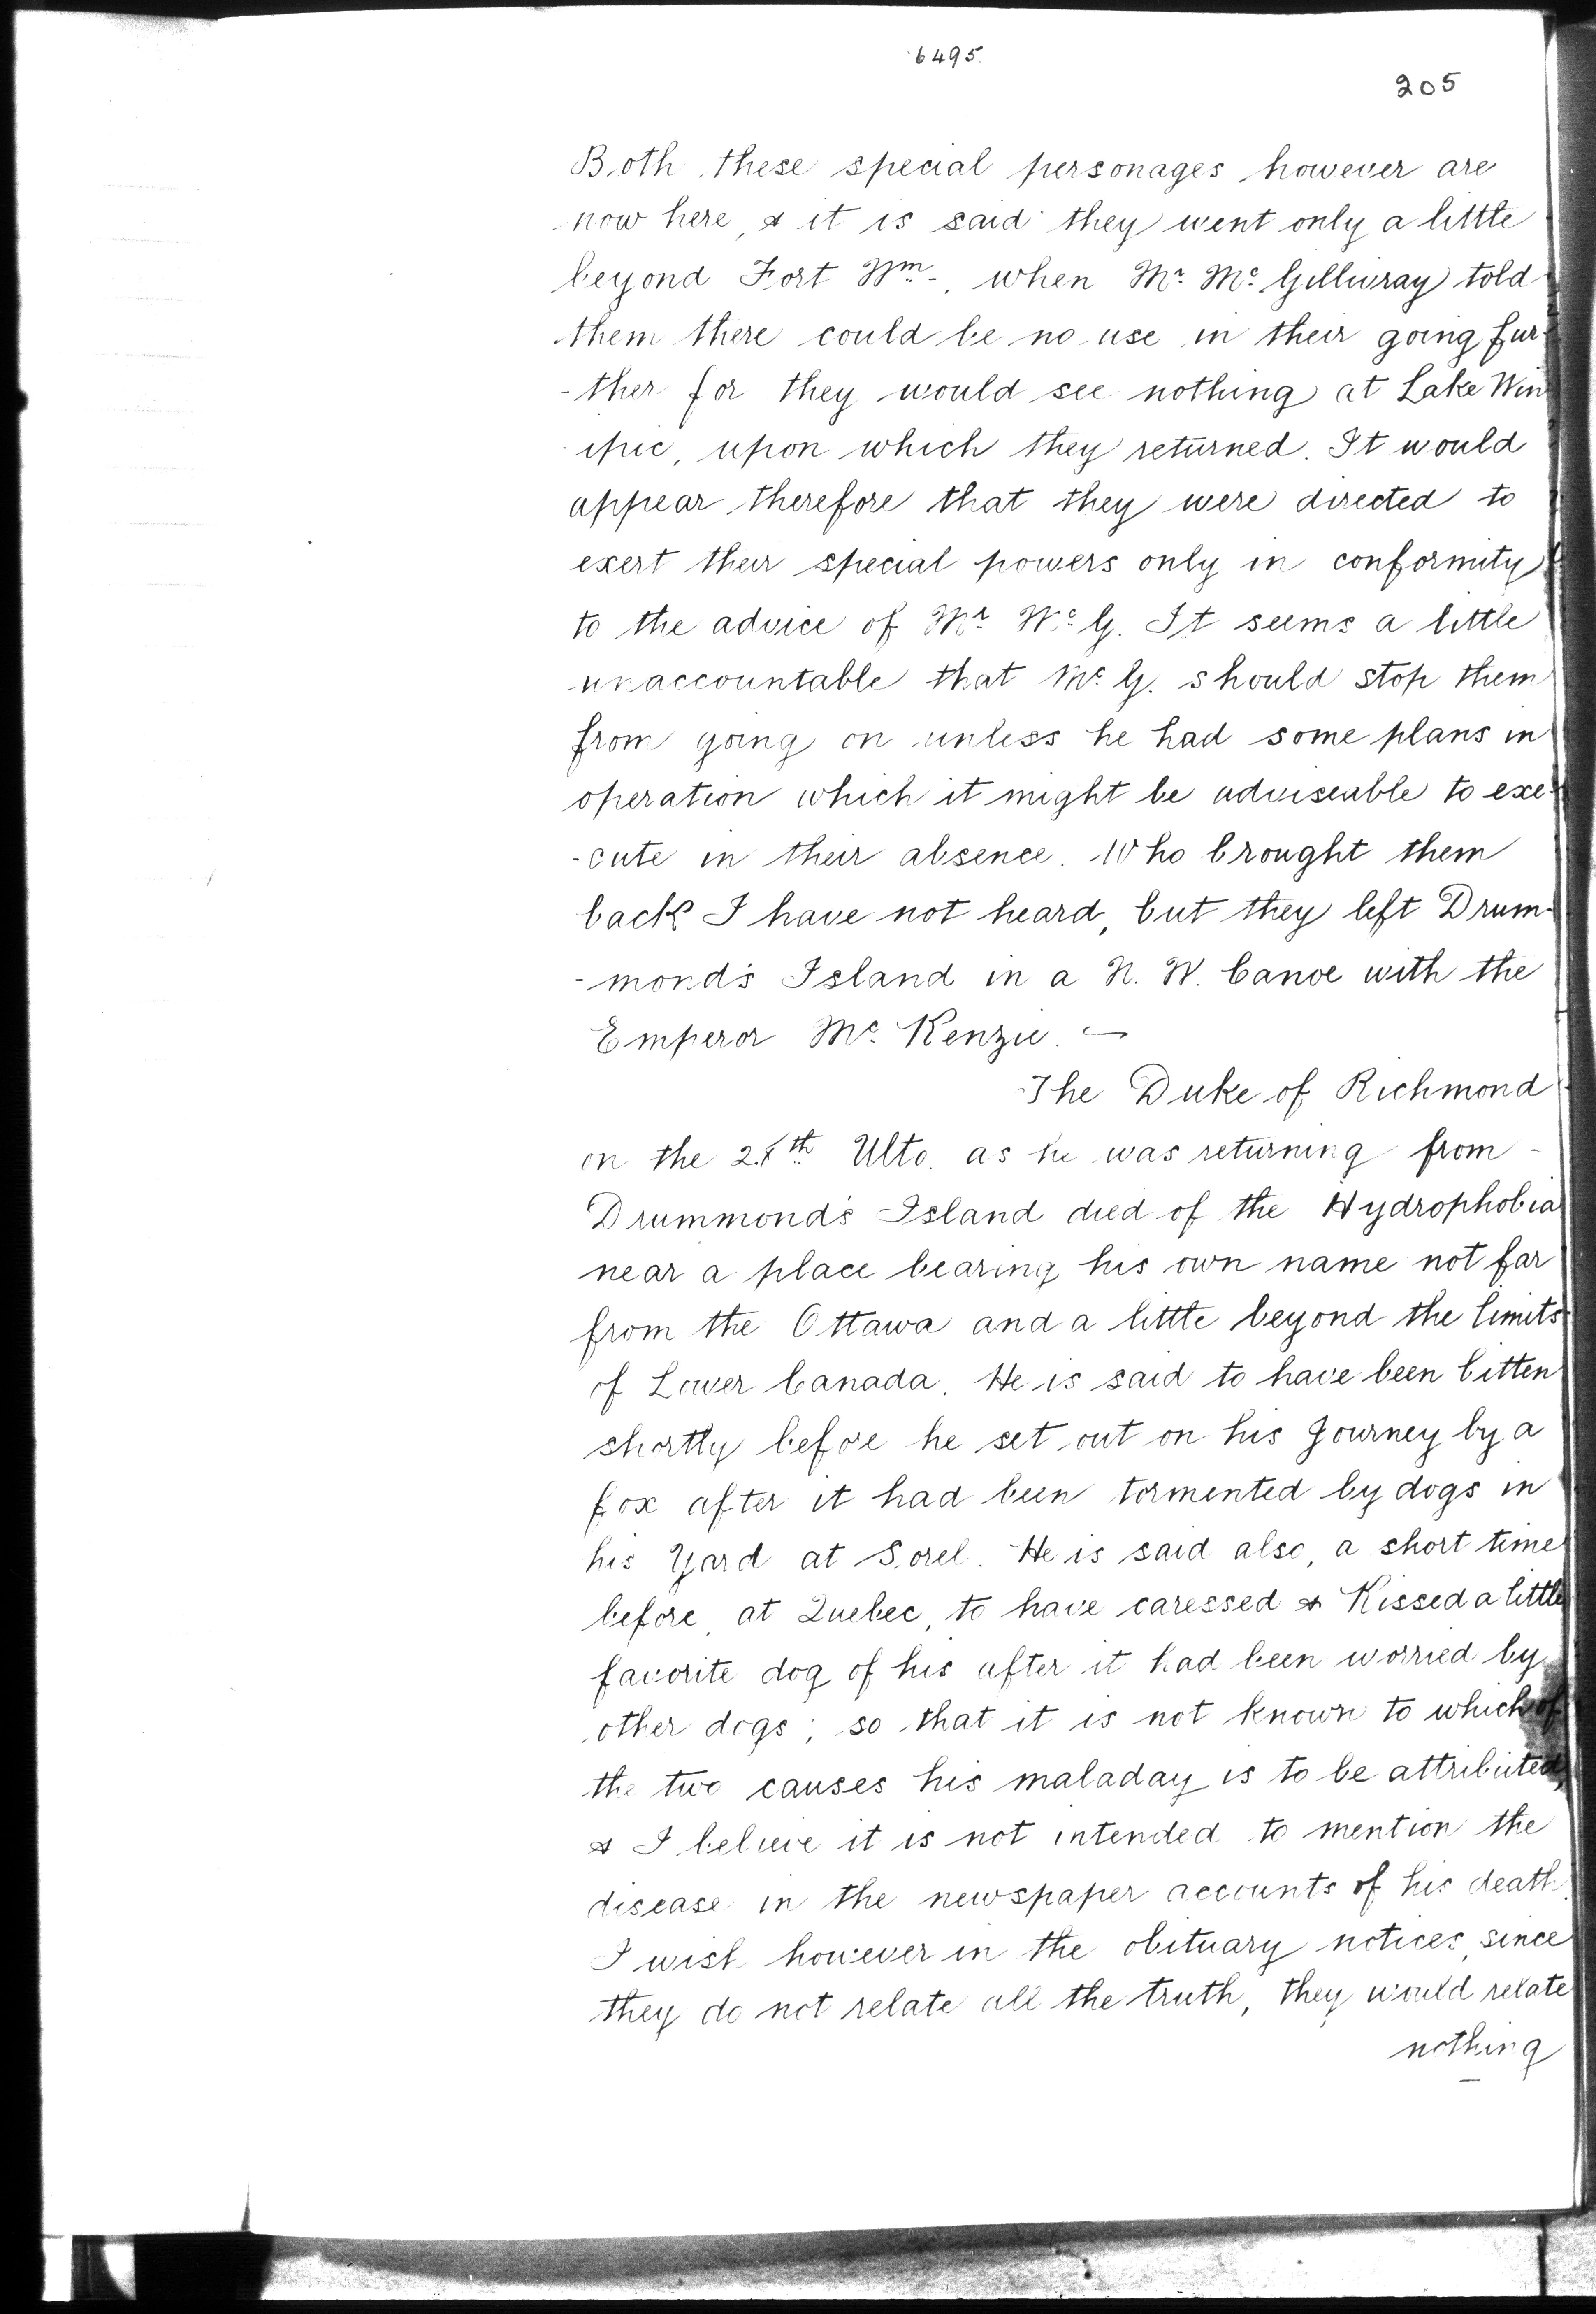 6495.
205
Both these special personages however are
now here, & it is said they went only a little
beyond Fort Wm-. when Mr. Mc. Gillivray told
them there could be no use in their going fur-
-ther for they would see nothing at Lake Win
-ipic, upon which they returned. It would
appear therefore that they were directed to
exert their special powers only in conformity
to the advice of Mr. Mc. G. It seems a little
unaccountable that Mc. G. should stop them
from going on unless he had some plans in
operation which it might be adviseable to exe-
-cute in their absence. Who brought them
back I have not heard, but they left Drum-
-mond's Island in a N. W. Canoe with the
Emperor Mc. Kenzie. —
The Duke of Richmond
on the th Ulto. as he was returning from -
Drummond's Island died of the Hydrophobia
near a place bearing his own name not far
from the Ottawa and a little beyond the limits
of Lower Canada. He is said to have been bitten
shortly before he set out on his Journey by a
fox after it had been tormented by dogs in
his Yard at Sorel. He is said also, a short time
before, at Quebec, to have caressed & Kissed a little
favorite dog of his after it had been worried by
other dogs; so that it is not known to which of
the two causes his maladay is to be attributed,
& I believe it is not intended to mention the
disease in the newspaper accounts of his death.
I wish however in the obituary notices, since
they do not relate all the truth, they would relate
nothing